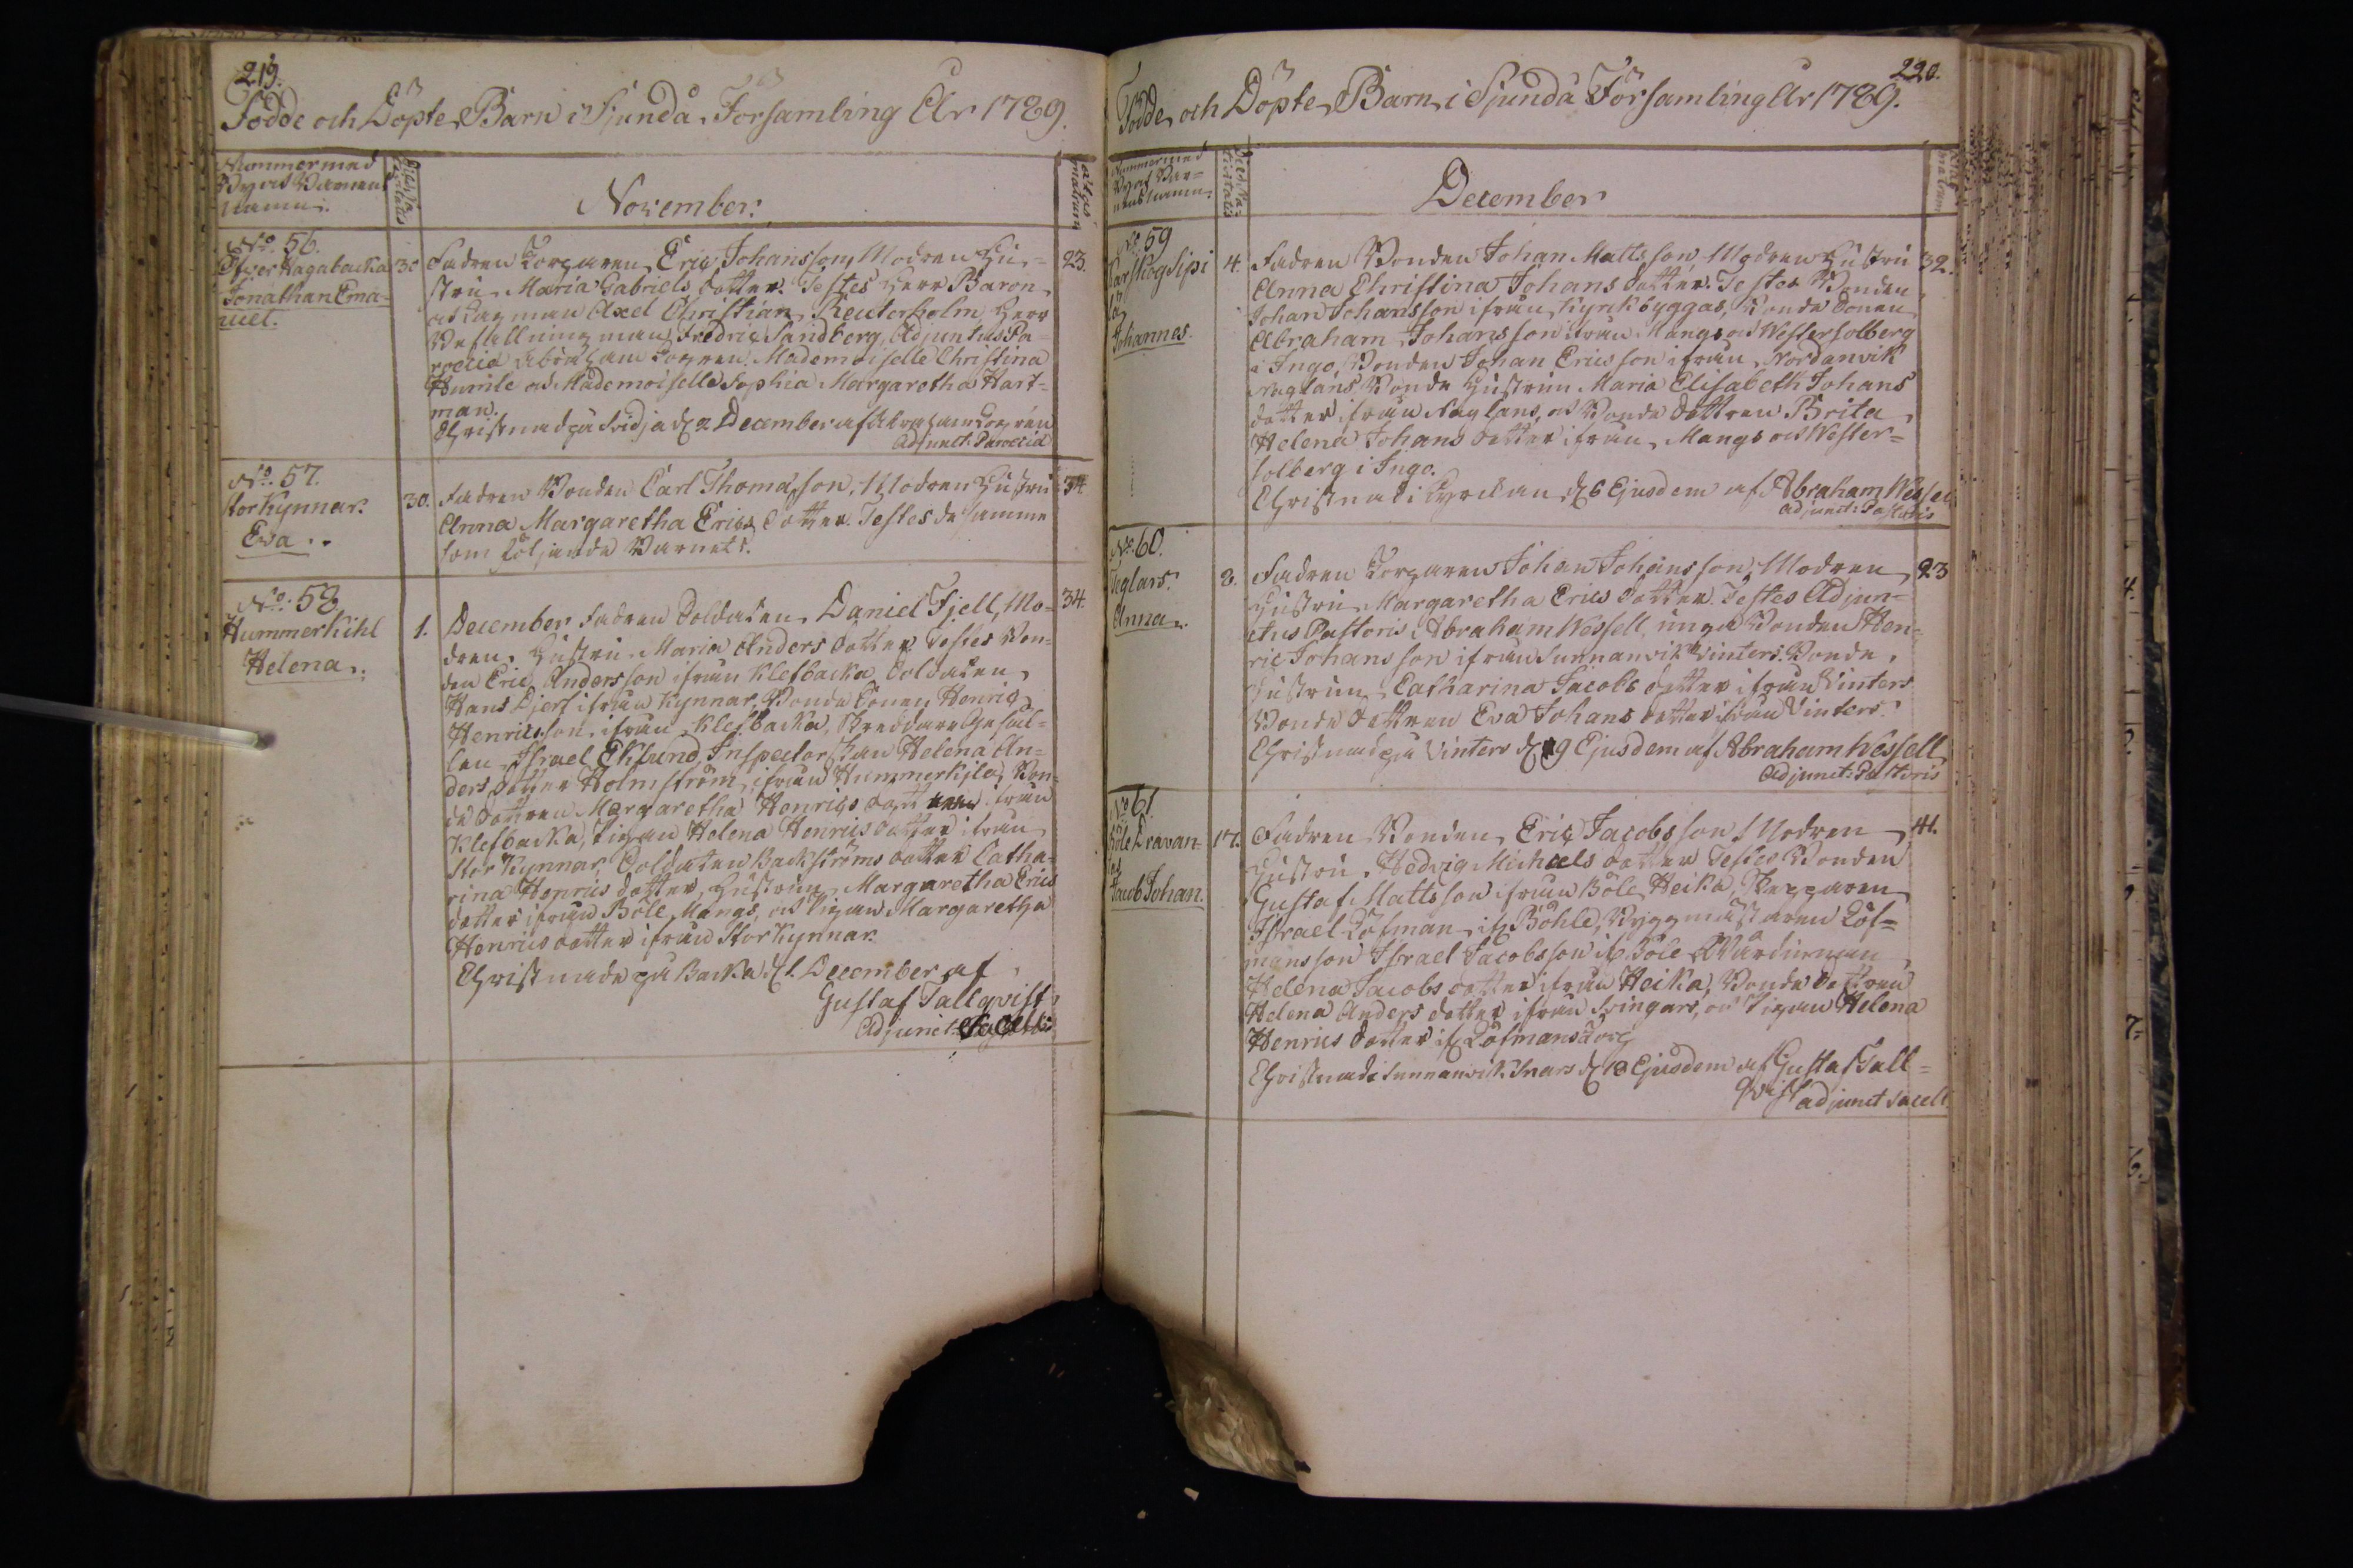 219.
Födde och Döpte Barn i Sjundå Församling År 1789.
Nummer med
By och Barnens
namn.
Dies Na-
tivitatis
November.
Ætas
matrum
No. 56.
Öfver Hagabacka
Jonathan Ema-
nuel.
30
Fadren Torparen Eric Johansson, Modren Hu-
stru Maria Gabriels dotter. Testes Herr Baron
och Lagman Axel Christian Reuterholm, Herr
Befallningsman Fredric Sandberg, Adjunctus Pa-
roecia Abraham Logren. Mademoiselle Christina
Humle och Mademoiselle Sophia Margaretha Hart-
man.
Christnad på Svidja d. 2 December af Abraham Logrén
Adjunct. Paroecia
23.
No. 57.
Stor Kynnar.
Eva..
30.
Fadren Bonden Carl Thomasson, Modren Hustru
Anna Margaretha Erics dotter. Testes de samme
som följande Barnets.
34
No. 58
Hummerkihl
Helena..
1.
December Fadren Soldaten Daniel Fjell, Mo-
dren Hustru Maria Anders dotter Testes Bon-
den Eric Andersson ifrån Klefbacka, Soldaten
Hans Djerf ifrån Kynnar, Bonde Sonen Henric
Henricsson ifrån Klefbacka, Skreddare Gesäl-
len Israel Eklund, Inspectorskan Helena An-
ders dotter Holmström ifrån Hummerkila, Bon-
de dottren Margaretha Henrics dotter ifrån
Klefbacka, Pigan Helena Henrics dotter ifrån
Stor Kynnar, Soldaten Backströms dotter Catha-
rina Henrics dotter, Hustrun Margaretha Erics
dotter ifrån Böle Mangs, och Pigan Margaretha
Henrics dotter ifrån Stor Kynnar.
Christnade på Backa d. 1. December af
Gustaf Tallqvist
Adjunct. Sacelli:
34.
220.
Födde och Döpte Barn i Sjundå Församling År 1789.
Nummer med
By och Bar-
nens namn.
Dies Na-
tivitatis
December
Ætas
matrum
No. 59
Johannes.
4.
Fadren Bonden Johan Matts son Modren Hustru
Anna Christina Johans dotter. Testes Bonden
Johan Johansson ifrån Kyrkbyggas, Bonde Sonen
Abraham Johansson ifrån Mangs och Westersolberg
i Ingo, Bonden Johan Ericsson ifrån Nordanvik
Naglans Bonde Hustrun Maria Elisabeth Johans
dotter ifrån Naglans, och Bonde dottren Brita
Helena Johans dotter ifrån Mangs och Wester-
solberg i Ingo.
Christnad i Kyrckan d. 6 Ejusdem af Abraham Wessell
adjunct: Pastoris
32.
No. 60.
Anna.
Fadren Torparen Johan Johans son, Modren
Hustru Margaretha Erics dotter. Testes Adjun-
ctus Pastoris Abraham Wessell, unga Bonden Hen-
ric Johansson ifrån Sunnanvik Vinters. Bonde
Hustrun Catharina Jacobs dotter ifrån Vinters
Bonde dottren Eva Johans dotter ifrån Vinters.
Christnad på Vinters d. 9 Ejusdem af Abraham Wessell
Adjunct: Pastoris
23
No. 61
Böle Dravan-
tas
Jacob Johan.
17.
Fadren Bonden Eric Jacobsson Modren
Hustru Hedvig Michaels dotter Testes Bonden
Gustaf Mattsson ifrån Böle Heika, Torparen
Israel Löfman if. Böhle, Byggmästaren Löf-
mans son Israel Jacobsson if. Böle,
Helena Jacobs dotter ifrån Heika, Bonde dottren
Helena Anders dotter ifrån Svingars, och Pigan Helena
Henrics dotter if. Löfmans torp
Christnad i Sunnanvik Snars d. 18 Ejusdem af Gustaf Tall-
qvist adjunct sacell.
41.